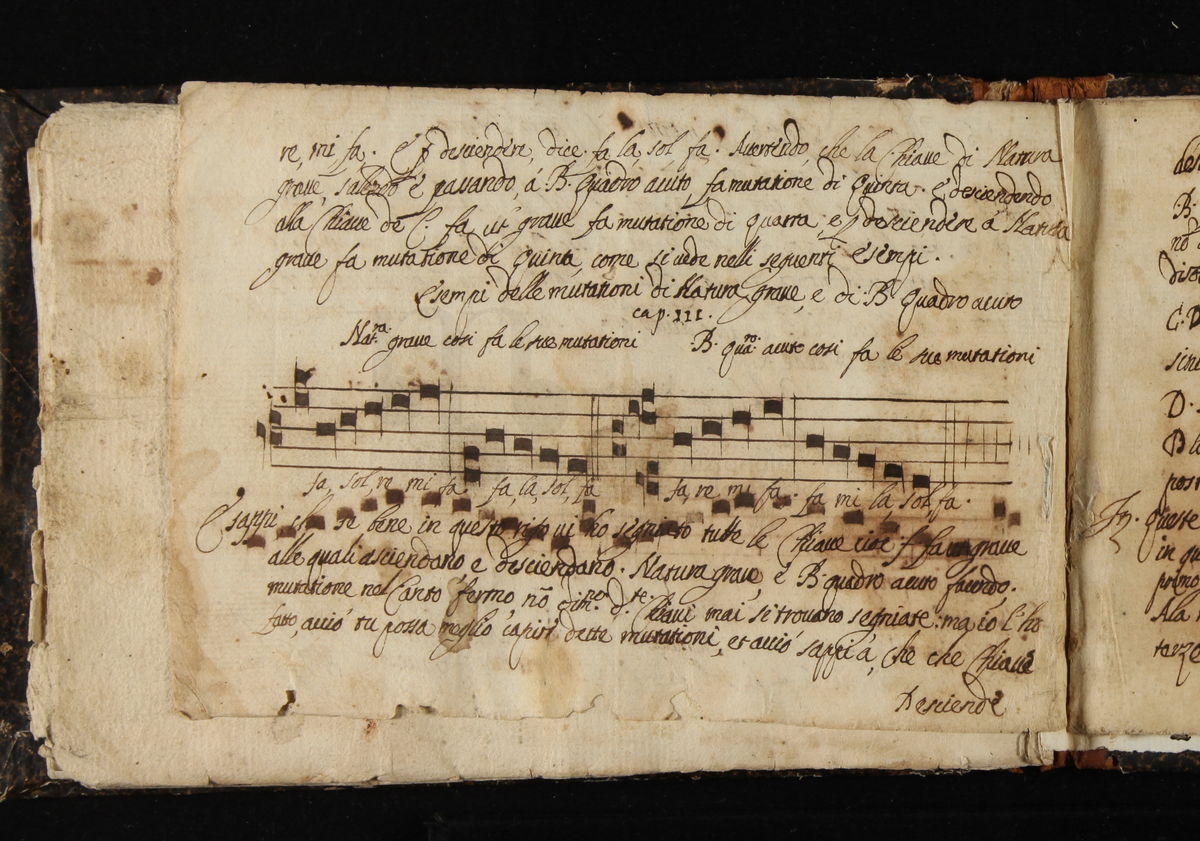 re, mi fa. E p descendire, dice. fa la, sol fa. Avertindo, che la Chiave di Natura
grave, salendo è passando, á B. quadro acuto, fa mutatione di Quinta. è, descendendo
alla Chiave de C. fa ut grave fa mutatione di quarta, e p descendire á Natura
grave fa mutatione di Quinta, come si vede nelli seguenti esempi.
Esempi delle mutationi di Natura grave, e di B. Quadro acuto
cap. III.
Nat.ra grave cosi fa le sue mutationi
B. qua.ro acuto cosi fa le sue mutationi
fa, sol, re mi fa fa, la, sol, fa
fa, re mi fa. fa mi la sol fa.
E sappi che se bene in questo ho segniato tutte le Chiave cioè f. fa ut grave
alle quali asciendano e desciendano. Natura grave, è B. quadro acuto facendo.
mutatione nel Canto fermo, nō dim.o d.te Chiavi mai si trovano segniate: ma io l'ho
fatto, acció tu possa meglio capire dette mutationi, et acció sappi á, che che Chiave
Desciende
del
B.
nō
C. D
D.
B la
post
In queste
in qu
prima
Alla
terzo